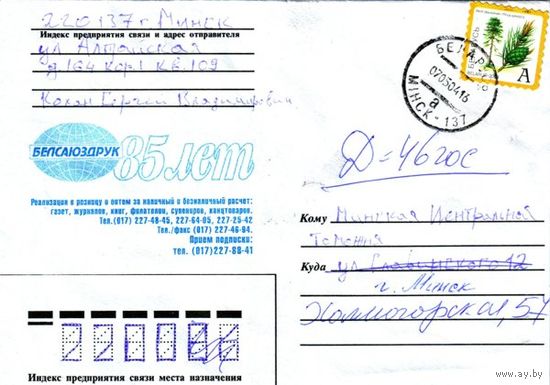 220137 г Минск
Индекс предприятия связи и адрес отправителя
ул Алтайская
д. 164 кор1 кв. 109
Владимирович
БЕЛСАЮЗДРУК
85 лет
Реализация в розницу и оптом за наличный и безналичный расчет:
газет, журналов, книг, филателии, сувениров, канцтоваров.
Тел.(017) 227-48-45, 227-64-05, 227-25-42
Тел./факс (017) 227-46-94.
Прием подписки:
тел. (017) 227-88-41
БЕЛАРУСЬ
А
БЕЛАРУ
07050416
а
МІНСК - 137
Д = 46 гос
Кому Минская Центральная
Таможня
Куда ул 12
г. Минск
Холмогорская, 57
Индекс предприятия связи места назначения
www.ay.by